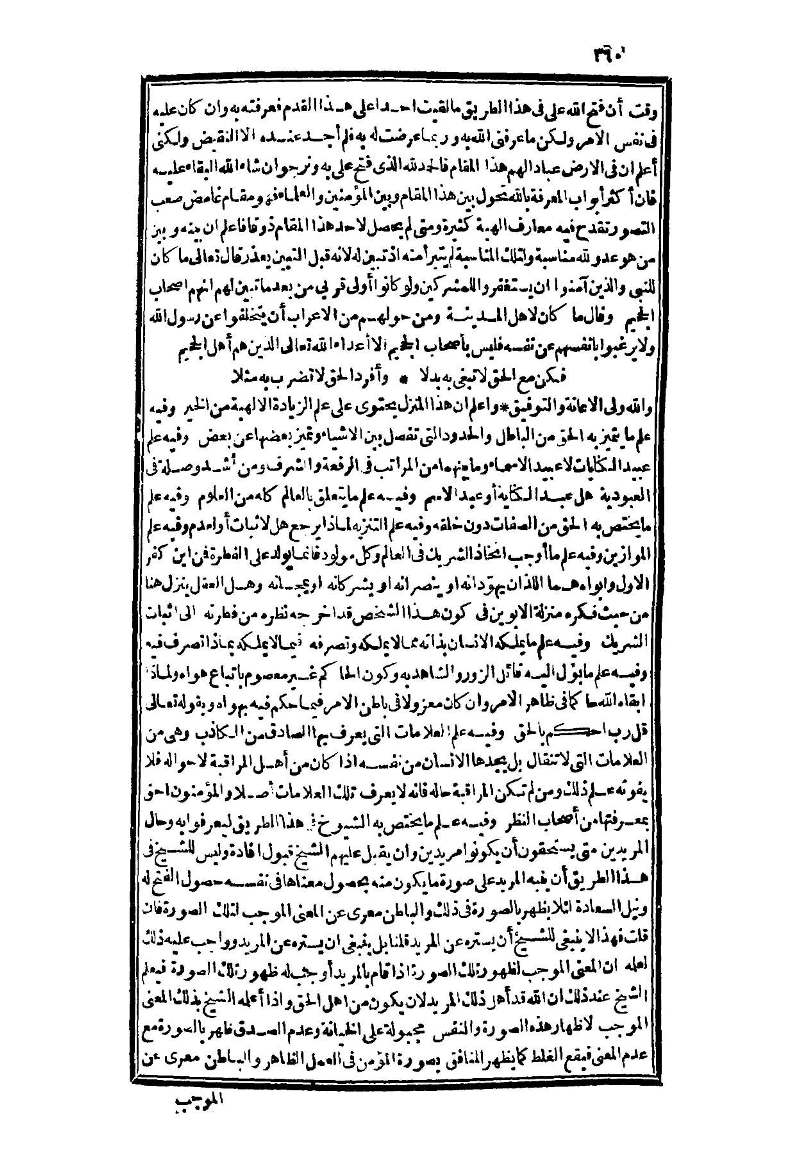 ٣٦٠
وقت أن فتح الله على فى هذا الطريق ما لقيت أحدا على هذا القدم فعرفته به وان كان عليه
فى نفس الامر ولكن ما عرفنى الله به وربما عرضت له به فلم أجد عنده الا النقيض ولكنى
أعلم ان فى الارض عباد الهم هذا المقام فالحمد لله الذى فتح على به ونرجو ان شاء الله البقاء عليه
فان أكثر أبواب المعرفة بالله تحول بين هذا المقام وبين المؤمنين والعلماء فهو مقام غامض صعب
التصور تقدح فيه معارف الهية كثيرة ومتى لم يحصل لاحد هذا المقام ذوقا فاعلم ان بينه وبين
من هو عدو لله مناسبة ولتلك المناسبة لم يتبرأ منه اذ تبين له لانه قبل التبيين يعذر قال تعالى ما كان
للنبى والذين آمنوا ان يستغفروا للمشركين ولو كانوا أولى قربى من بعد ما تبين لهم انهم اصحاب
الجحيم وقال ما كان لاهل المدينة ومن حولهم من الاعراب أن يتخلفوا عن رسول الله
ولا يرغبوا بانفسهم عن نفسه فليس بأصحاب الجحيم الا أعداء الله تعالى الذين هم أهل الجحيم
فكن مع الحق لا تبغى به بدلا * وأفرد الحق لا تضرب به مثلا
والله ولى الاعانة والتوفيق * واعلم ان هذا المنزل يحتوى على علم الزيادة الالهية من الخير وفيه
علم ما يتميز به الحق من الباطل والحدود التى تفصل بين الاشياء وتميز بعضها عن بعض وفيه علم
عبيد الكنايات لا عبيد الاسماء وما بينهما من المراتب فى الرفعة والشرف ومن أشد وصلة فى
العبودية هل عبد الكناية أو عبد الاسم وفيه علم ما يتعلق بالعالم كله من العلوم وفيه علم
ما يختص به الحق من الصفات دون خلقه وفيه علم التنزيه لماذا يرجع هل لاثبات أو لعدم وفيه علم
الموازين وفيه علم ما أوجب اتخاذ الشريك فى العالم وكل مولود فانما يولد على الفطرة فن اين كفر
الاول وابواه هما اللذان يهودانه او ينصرانه او يشركانه او يمجسانه وهل العقل ينزل هنا
من حيث فكره منزلة الابوين فى كون هذا الشخص قد اخرجه نظره من فطرته الى اثبات
الشريك وفيه علم ما يملكه الانسان بذاته مما لا يملكه وتصرفه فيما لا يملكه بماذا تصرف فيه
وفيه علم ما يؤل اليه قائل الزور والشاهد به وكون الحاكم غير معصوم باتباع هواه ولماذا
ابقاه الله حاكما فى ظاهر الامر وان كان معزولا فى باطن الامر فيما حكم فيه بهواه وبقوله تعالى
قل رب احكم بالحق وفيه علم العلامات التى يعرف بها الصادق من الكاذب وهى من
العلامات التى لا تنقال بل يجدها الانسان من نفسه اذا كان من أهل المراقبة لاحواله فلا
يفوته علم ذلك ومن لم تكن المراقبة حاله فانه لا يعرف تلك العلامات أصلا والمؤمنون احق
بمعرفتها من أصحاب النظر وفيه علم ما يختص به الشيوخ فى هذا الطريق ليعرفوا به وحال
المريدين متى يستحقون أن يكونوا مريدين وان يقبل عليهم الشيخ قبول افادة وليس للشيخ فى
هذا الطريق أن ينبه المريد على صورة ما يكون منه بحصول معناها فى نفسه حصول الفتح له
ونيل السعادة لئلا يظهر بالصورة فى ذلك والباطن معرى عن المعنى الموجب لتلك الصورة فان
قلت فهذا لا ينبغى للشيخ أن يستره عن المريد قلنا بل ينبغى ان يستره عن المريد وواجب عليه ذلك
لعلمه ان المعنى الموجب لظهور تلك الصورة اذا قام بالمريد أوجب له ظهور تلك الصورة فيعلم
الشيخ عند ذلك ان الله قد أهل ذلك المريد لان يكون من اهل الحق واذا أعلمه الشيخ بذلك المعنى
الموجب لاظهار هذه الصورة والنفس مجبولة على الخيانة وعدم الصدق ظهر بالصورة مع
عدم المعنى فيقع الغلط كما يظهر المنافق بصورة المؤمن فى العمل الظاهر والباطن معرى عن
الموجب